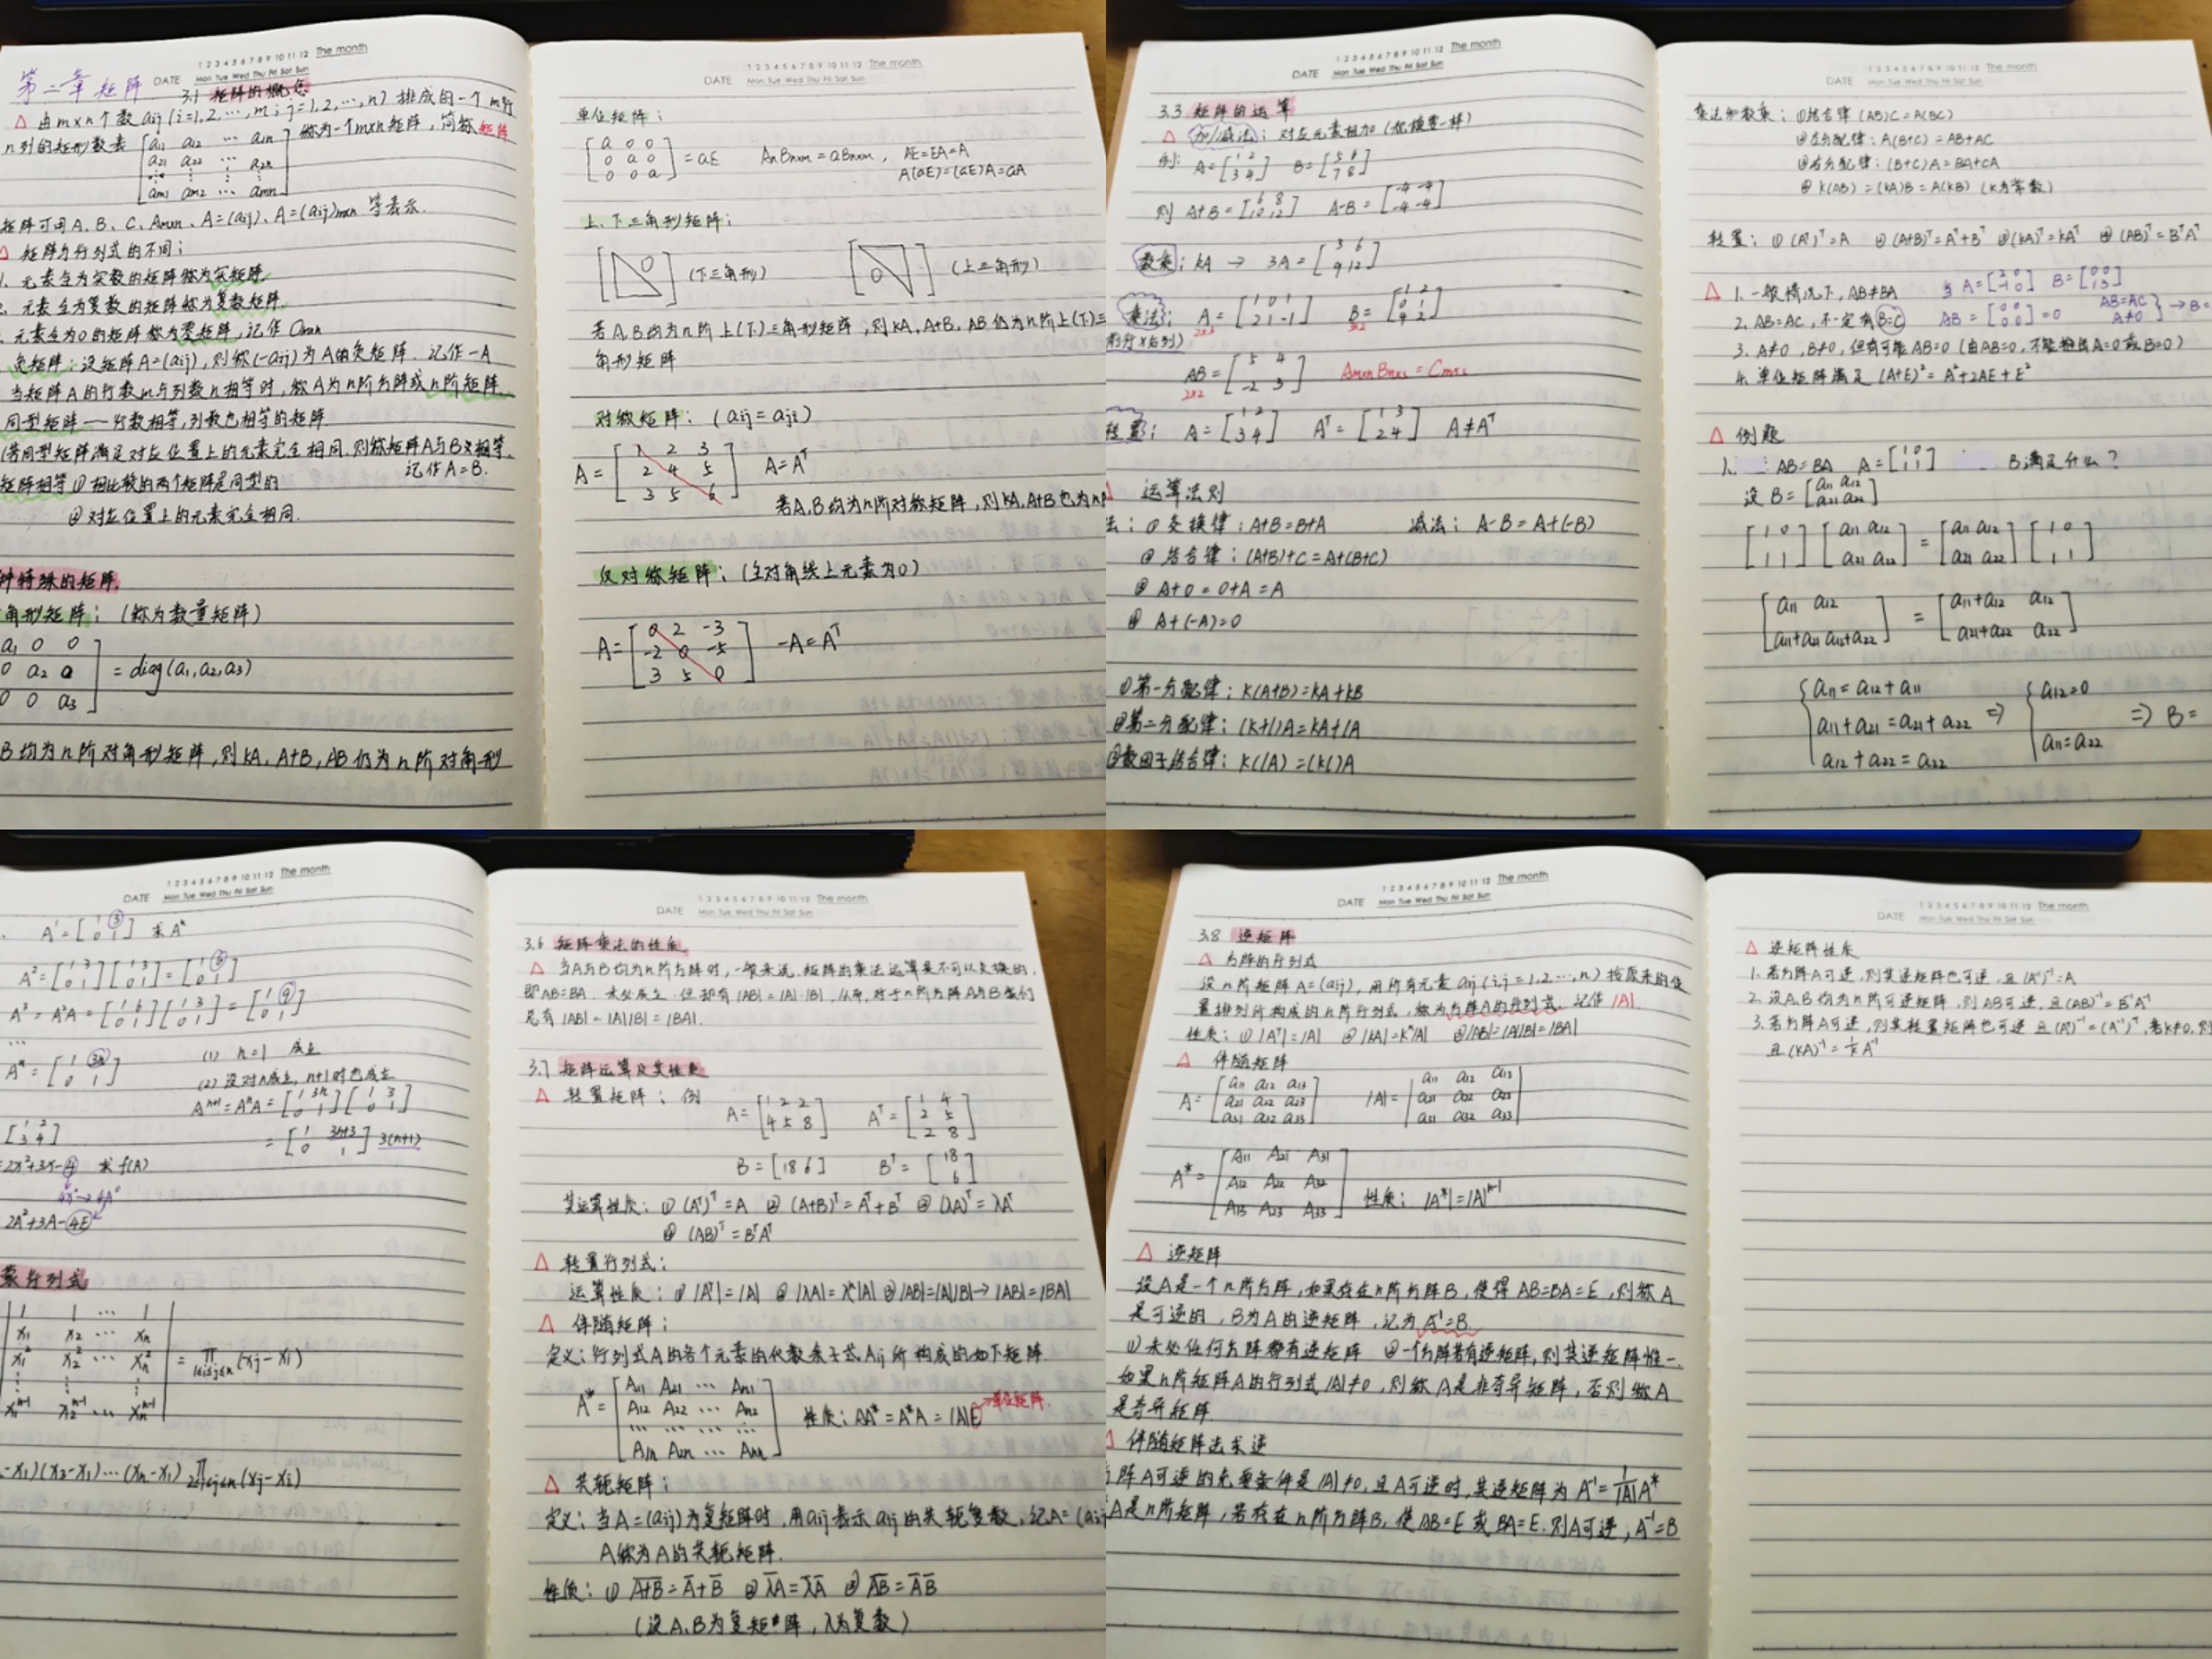 1 2 3 4 5 6 7 8 9 10 11 12 The month
DATE Mon Tue Wed Thu Fri Sat Sun
第二章 矩阵 3.1 矩阵的概念
△ 由m×n个数aij(i=1,2,…,m; j=1,2,…,n)排成的一个m行
n列的矩形数表 [a11 a12 … a1n 称为一个m×n矩阵,简称矩阵
a21 a22 … a2n
⋮ ⋮ ⋮
am1 am2 … amn]
矩阵可用A、B、C、Am×n、A=(aij)、A=(aij)m×n 等表示.
△ 矩阵与行列式的不同:
1. 元素全为实数的矩阵称为实矩阵.
2. 元素全为复数的矩阵称为复数矩阵.
元素全为0的矩阵称为零矩阵,记作Om×n
负矩阵:设矩阵A=(aij),则称(-aij)为A的负矩阵.记作-A
当矩阵A的行数m与列数n相等时,称A为n阶方阵或n阶矩阵.
同型矩阵——行数相等,列数也相等的矩阵.
(若同型矩阵满足对应位置上的元素完全相同.则称矩阵A与B相等.
记作A=B.
矩阵相等 ① 相比较的两个矩阵是同型的
② 对应位置上的元素完全相同.
种特殊的矩阵.
角形矩阵:(称为数量矩阵)
a1 0 0
0 a2 0 ] = diag(a1,a2,a3)
0 0 a3
B均为n阶对角形矩阵,则kA,A+B,AB仍为n阶对角形
1 2 3 4 5 6 7 8 9 10 11 12 The month
DATE Mon Tue Wed Thu Fri Sat Sun
单位矩阵:
[a 0 0
0 a 0 = aE AnBn×m=aBn×m, AE=EA=A
0 0 a] A(aE)=(aE)A=aA
上、下三角形矩阵:
[ 0 ] (下三角形) [ 0 ] (上三角形)
若A,B均为n阶上(下)三角形矩阵,则kA,A+B,AB仍为n阶上(下)三
角形矩阵
对称矩阵:(aij=aji)
A= [1 2 3
2 4 5 A=Aᵀ
3 5 6]
若A,B均为n阶对称矩阵,则kA,A+B也为n
反对称矩阵:(主对角线上元素为0)
A= [0 2 -3
-2 0 -5 -A=Aᵀ
3 5 0]
1 2 3 4 5 6 7 8 9 10 11 12 The month
DATE Mon Tue Wed Thu Fri Sat Sun
3.3 矩阵的运算
△ 加/减法:对应元素相加(型换要一样)
例: A=[1 2 3 4] B=[5 6 7 8]
则 A+B=[6 8 10 12] A-B=[-4 -4 -4 -4]
数乘:kA → 3A=[3 6 9 12]
乘法: A=[1 0 1 2 1 -1] B=[1 2 0 1 4 2]
2×3 3×2
前行×后列)
AB=[5 4 -2 3] Am×nBn×s=Cm×s
2×2
转置: A=[1 2 3 4] Aᵀ=[1 3 2 4] A≠Aᵀ
运算法则
法:①交换律:A+B=B+A 减法:A-B=A+(-B)
②结合律:(A+B)+C=A+(B+C)
③ A+0=0+A=A
④ A+(-A)=0
①第一分配律:k(A+B)=kA+kB
②第二分配律:(k+l)A=kA+lA
③数因子结合律:k(lA)=(kl)A
1 2 3 4 5 6 7 8 9 10 11 12 The month
DATE Mon Tue Wed Thu Fri Sat Sun
乘法和数乘:①结合律(AB)C=A(BC)
②左分配律:A(B+C)=AB+AC
③右分配律:(B+C)A=BA+CA
④ k(AB)=(kA)B=A(kB)(k为常数)
转置:①(Aᵀ)ᵀ=A ②(A+B)ᵀ=Aᵀ+Bᵀ ③(kA)ᵀ=kAᵀ ④(AB)ᵀ=BᵀAᵀ
△ 1. 一般情况下,AB≠BA 当A=[2 0 -1 0] B=[0 0 1 3]
2. AB=AC,不一定有B=C AB=[0 0 0 0]=0 AB=AC A≠0 } → B=
3. A≠0,B≠0,但有可能AB=0(由AB=0,不能推出A=0或B=0)
4. 单位矩阵满足(A+E)²=A²+2AE+E²
△ 例题
1. AB=BA A=[1 0 1 1] B满足什么?
设B=[a11 a12 a21 a22]
[1 0 1 1][a11 a12 a21 a22]=[a11 a12 a21 a22][1 0 1 1]
[a11 a12 a11+a21 a12+a22] = [a11+a12 a12 a21+a22 a22]
{a11=a12+a11 {a12=0
a11+a21=a21+a22 ⇒ ⇒ B=
a12+a22=a22 a11=a22
1 2 3 4 5 6 7 8 9 10 11 12 The month
DATE Mon Tue Wed Thu Fri Sat Sun
A¹=[1 3 0 1] 求Aⁿ
A²=[1 3 0 1][1 3 0 1]=[1 6 0 1]
A³=A²A=[1 6 0 1][1 3 0 1]=[1 9 0 1]
…
Aⁿ=[1 3n 0 1] (1) n=1 成立
(2) 设对n成立,n+1时也成立
Aⁿ⁺¹=AⁿA=[1 3n 0 1][1 3 0 1]
[1 2 3 4] =[1 3n+3 0 1] 3(n+1)
=2x²+3x-4 求f(A)
4x⁰→4A⁰
2A²+3A-4E
蒙行列式
1 1 … 1
x1 x2 … xn
x1² x2² … xn² = ∏1≤i≤j≤n(xj-xi)
⋮ ⋮ ⋮
x1ⁿ⁻¹ x2ⁿ⁻¹ … xnⁿ⁻¹
-x1)(x3-x1)…(xn-x1)∏2≤i≤j≤n(xj-xi)
1 2 3 4 5 6 7 8 9 10 11 12 The month
DATE Mon Tue Wed Thu Fri Sat Sun
3.6 矩阵乘法的性质
△ 当A与B均为n阶方阵时,一般来说,矩阵的乘法运算是不可以交换的.
即AB=BA.未必成立.但却有|AB|=|A|·|B|,从而,对于n阶方阵A与B我们
总有|AB|=|A||B|=|BA|.
3.7 矩阵运算及其性质
△ 转置矩阵:例 A=[1 2 2 4 5 8] Aᵀ=[1 4 2 5 2 8]
B=[18 6] Bᵀ=[18 6]
其运算性质:①(Aᵀ)ᵀ=A ②(A+B)ᵀ=Aᵀ+Bᵀ ③(λA)ᵀ=λAᵀ
④(AB)ᵀ=BᵀAᵀ
△ 转置行列式:
运算性质:①|Aᵀ|=|A| ②|λA|=λⁿ|A| ③|AB|=|A||B|→|AB|=|BA|
△ 伴随矩阵:
定义:行列式A的各个元素的代数余子式Aij所构成的如下矩阵.
A*= [A11 A21 … An1
A12 A22 … An2 性质:AA*=A*A=|A|E→单位矩阵.
… … … …
A1n A2n … Ann]
△ 共轭矩阵:
定义:当A=(aij)为复矩阵时,用aij表示aij的共轭复数,记A=(aij
A称为A的共轭矩阵.
性质:①A̅+̅B̅=A̅+B̅ ②λ̅A̅=λ̅A̅ ③A̅B̅=A̅ B̅
(设A,B为复矩阵,λ为复数)
1 2 3 4 5 6 7 8 9 10 11 12 The month
DATE Mon Tue Wed Thu Fri Sat Sun
3.8 逆矩阵
△ 方阵的行列式
设n阶矩阵A=(aij),用所有元素aij(i,j=1,2…,n)按原来的位
置排列所构成的n阶行列式,称为方阵A的行列式.记作|A|.
性质:①|Aᵀ|=|A| ②|kA|=kⁿ|A| ③|AB|=|A||B|=|BA|
△ 伴随矩阵
A= [a11 a12 a13 |A|= |a11 a12 a13
a21 a22 a23 a21 a22 a23
a31 a32 a33] a31 a32 a33|
A*= [A11 A21 A31
A12 A22 A32 性质:|A*|=|A|ⁿ⁻¹
A13 A23 A33]
△ 逆矩阵
设A是一个n阶方阵,如果存在n阶方阵B,使得AB=BA=E,则称A
是可逆的,B为A的逆矩阵,记为A⁻¹=B.
①未必任何方阵都有逆矩阵 ②一个方阵若有逆矩阵,则其逆矩阵惟一.
如果n阶矩阵A的行列式|A|≠0,则称A是非奇异矩阵,否则称A
是奇异矩阵.
伴随矩阵法求逆
阵A可逆的充要条件是|A|≠0,且A可逆时,其逆矩阵为A⁻¹=1/|A| A*
A是n阶矩阵,若存在n阶方阵B,使AB=E或BA=E.则A可逆,A⁻¹=B
1 2 3 4 5 6 7 8 9 10 11 12 The month
DATE Mon Tue Wed Thu Fri Sat Sun
△ 逆矩阵性质
1. 若方阵A可逆,则其逆矩阵也可逆,且(A⁻¹)⁻¹=A
2. 设A,B均为n阶可逆矩阵,则AB可逆,且(AB)⁻¹=B⁻¹A⁻¹
3. 若方阵A可逆,则其转置矩阵也可逆 且(Aᵀ)⁻¹=(A⁻¹)ᵀ,若k≠0,则
且(kA)⁻¹=1/k A⁻¹